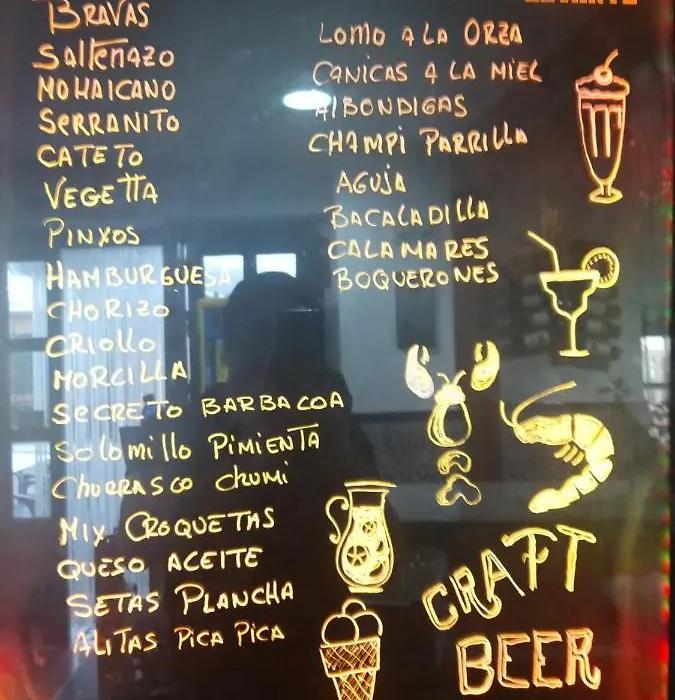 BRAVAS
SALTEÑAZO
MOHAICANO
SERRANITO
CATETO
VEGETTA
PINXOS
HAMBURGUESA
CHORIZO
CRIOLLO
MORCILLA
SECRETO BARBACOA
SOLOMILLO PIMIENTA
CHURRASCO CHUMI
MIX CROQUETAS
QUESO ACEITE
SETAS PLANCHA
ALITAS PICA PICA
LOMO A LA ORZA
CANICAS A LA MIEL
AlBONDIGAS
CHAMPI PARRILLA
AGUJA
BACALADILLA
CALAMARES
BOQUERONES
CRAFT
BEER